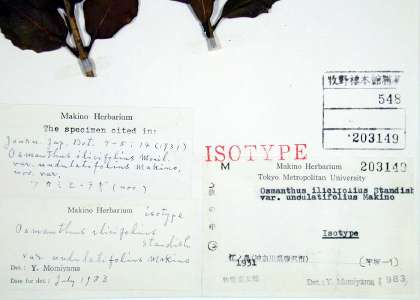 Makino Herbarium
The specimen cited in:
Journ. Jap. Bot. 7-5: 14 (1931)
Osmanthus ilicifolius
var. undulatifolius Makino,
nov. var.
Makino Herbarium
isotype
Osmanthus ilicifolius
Standish
var. undulatifolius Makino
Det.: Y. Momiyama
Date for det.: July 1983
牧野標本館
548
203149
ISOTYPE
M
Makino Herbarium
203149
Tokyo Metropolitan University
Osmanthus ilicifolius Standish
var. undulatifolius Makino
Isotype
1931
Det.: Y. Momiyama 1983